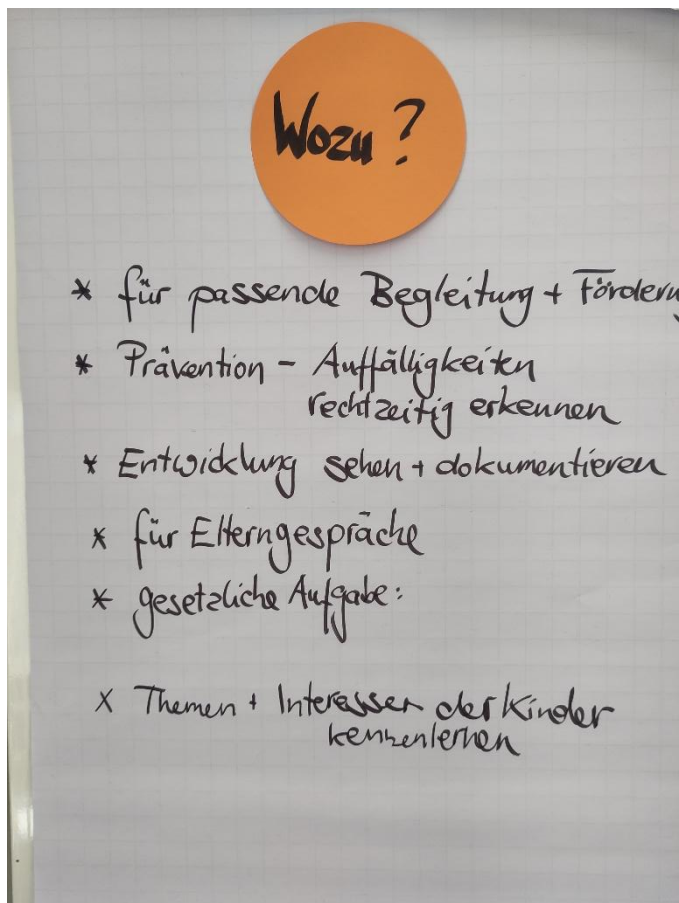 Wozu?
* für passende Begleitung + Förderu
* Prävention - Auffälligkeiten
rechtzeitig erkennen
* Entwicklung sehen + dokumentieren
* für Elterngespräche
* gesetzliche Aufgabe:
x Themen + Interessen der Kinder
kennenlernen